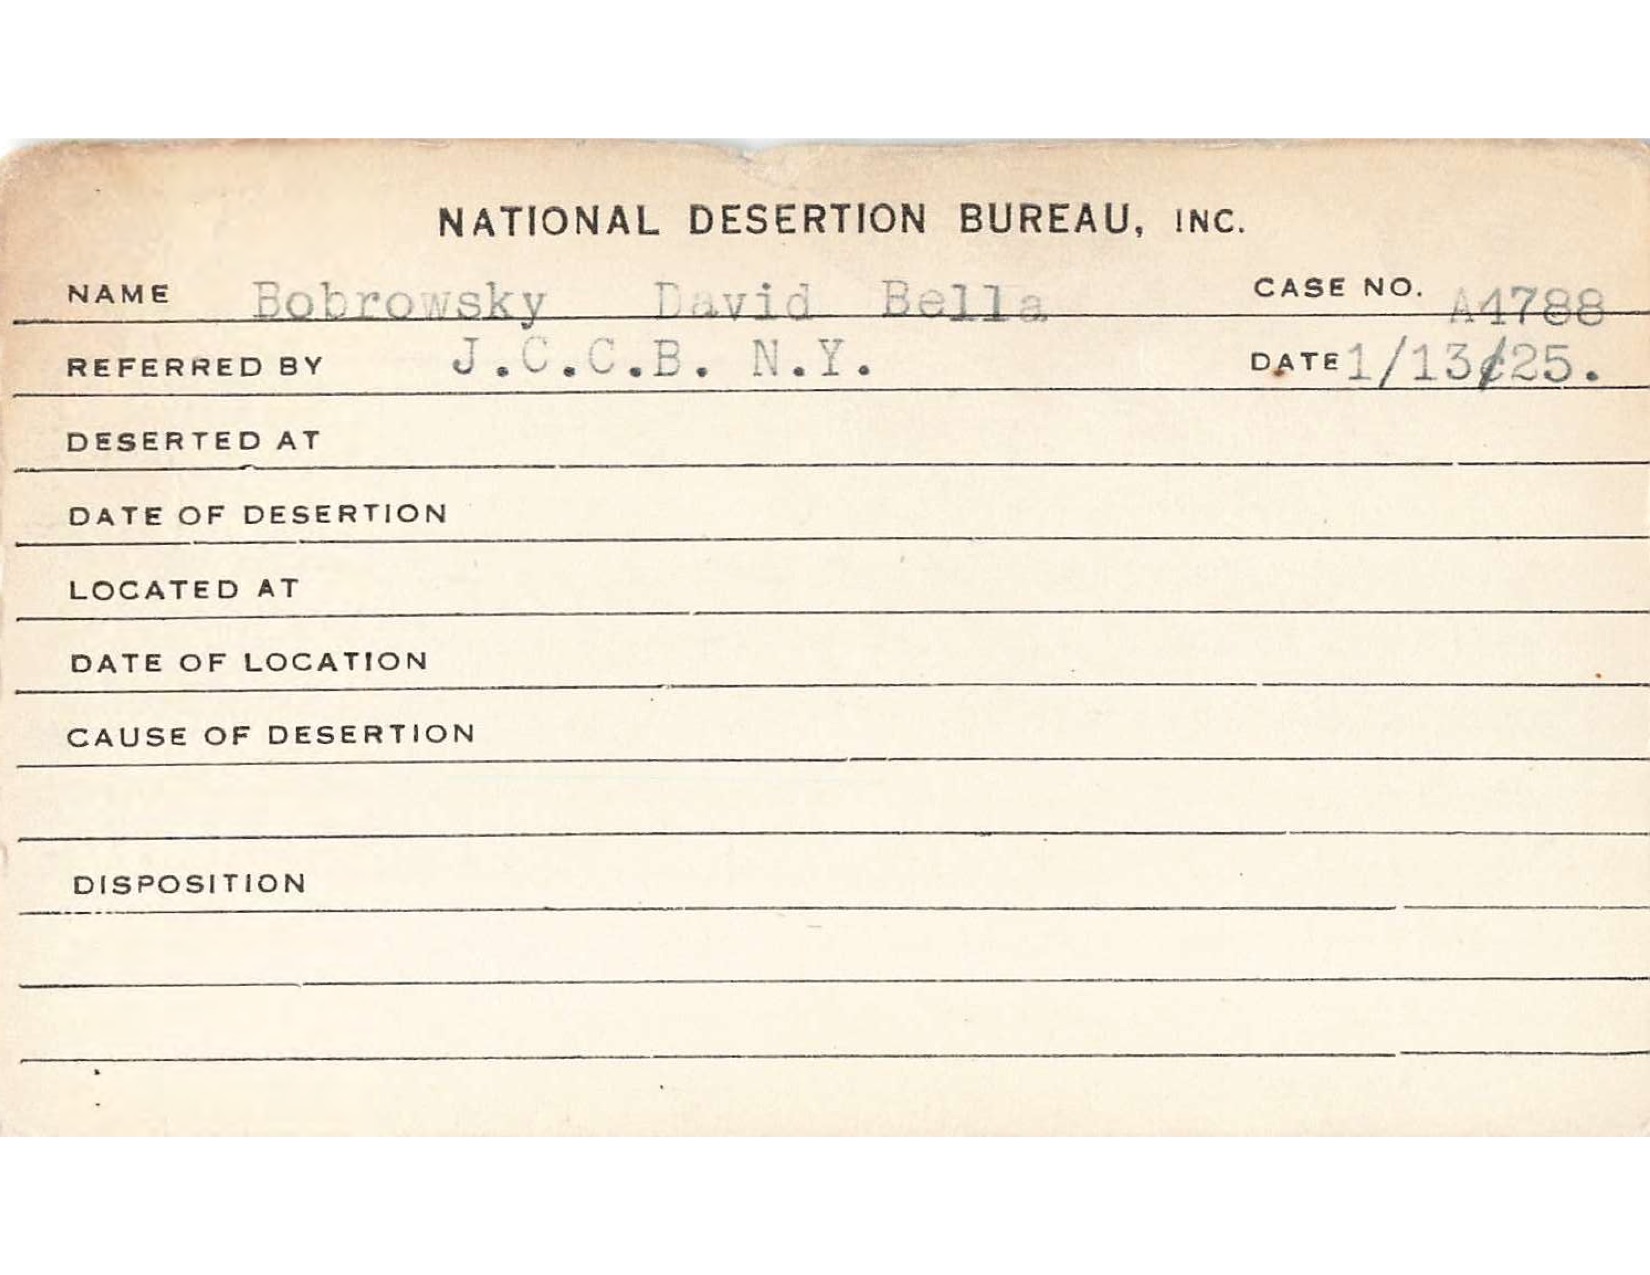 NATIONAL DESERTION BUREAU, INC.
NAME Bobrowsky David Bella CASE NO. A4788
REFERRED BY J.C.C.B. N.Y. DATE 1/13/25.
DESERTED AT
DATE OF DESERTION
LOCATED AT
DATE OF LOCATION
CAUSE OF DESERTION
DISPOSITION